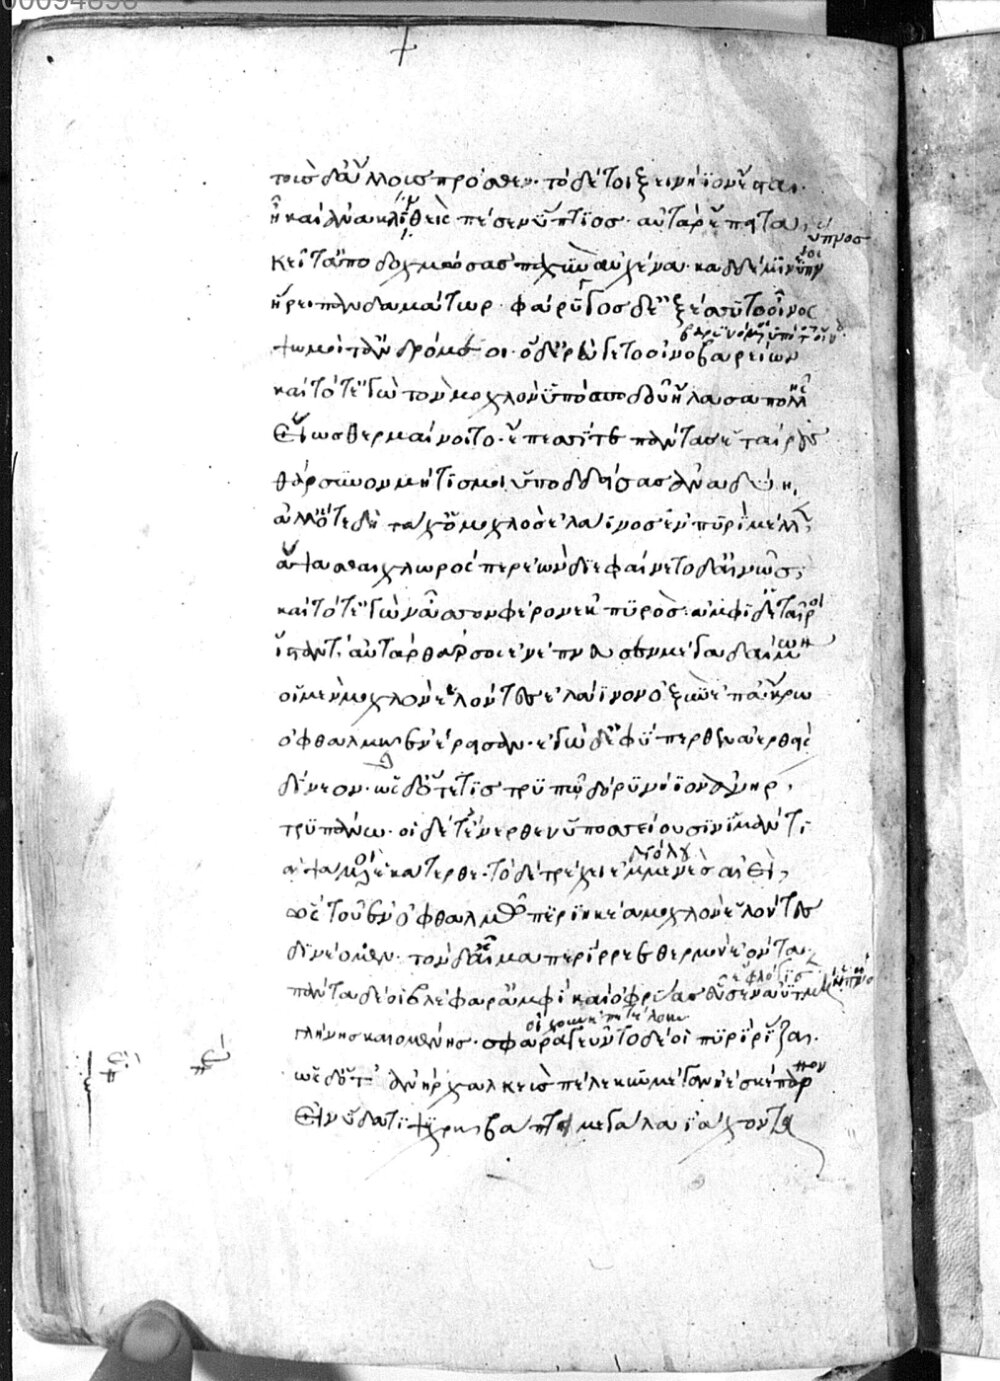 00094898
τοὺς δ' ἄλλους πρόσθεν· τὸ δέ τοι ξεινήϊον ἔσται·
ἦ καὶ ἀνακλινθεὶς πέσεν ὕπτιος· αὐτὰρ ἔπειτα
ὕπνος
κεῖτ' ἀποδοχμώσας παχὺν αὐχένα· καδδέ μιν ὕπν
ᾕρει πανδαμάτωρ· φάρυγος δ' ἐξέσσυτο οἶνος
ψωμοί τ' ἀνδρόμεοι· ὁ δ' ἐρεύγετο οἰνοβαρείων
καὶ τότ' ἐγὼ τὸν μοχλὸν ὑπὸ σποδοῦ ἤλασα πολλῆς
εἵως θερμαίνοιτο· ἔπεσσί τε πάντας ἑταίρους
θάρσυνον μή τίς μοι ὑποδδείσας ἀναδύῃ
ἀλλ' ὅτε δὴ τάχ' ὁ μοχλὸς ἐλάϊνος ἐν πυρὶ μέλλεν
ἅψασθαι χλωρός περ ἐών διεφαίνετο δ' αἰνῶς
καὶ τότ' ἐγὼν ἆσσον φέρον ἐκ πυρός· ἀμφὶ δ' ἑταῖροι
ἵσταντ' αὐτὰρ θάρσος ἐνέπνευσεν μέγα δαίμων
οἱ μὲν μοχλὸν ἑλόντες ἐλάϊνον ὀξὺν ἐπ' ἄκρω
ὀφθαλμῷ ἐνέρεισαν· ἐγὼ δ' ἐφύπερθεν ἀερθεὶς
δίνεον· ὡς δ' ὅτε τις τρυπῷ δόρυ νήϊον ἀνὴρ
τρυπάνω· οἱ δέ τ' ἔνερθεν ὑποσσείουσιν ἱμάντι
ἁψάμενοι ἑκάτερθε· τὸ δὲ τρέχει ἐμμενὲς αἰεὶ
ὣς τοῦ ἐν ὀφθαλμῷ πυριηκέα μοχλὸν ἑλόντες
δινέομεν· τὸν δ' αἷμα περίρρεε θερμὸν ἐόντα
πάντα δέ οἱ βλέφαρ' ἀμφὶ καὶ ὀφρύας εὗσεν ἀϋτμὴ
γλήνης καιομένης· σφαραγεῦντο δέ οἱ πυρὶ ῥίζαι·
ὡς δ' ὅτ' ἀνὴρ χαλκεὺς πέλεκυν μέγαν ἠὲ σκέπαρνον
εἰν ὕδατι ψυχρῷ βάπτῃ μεγάλα ἰάχοντα